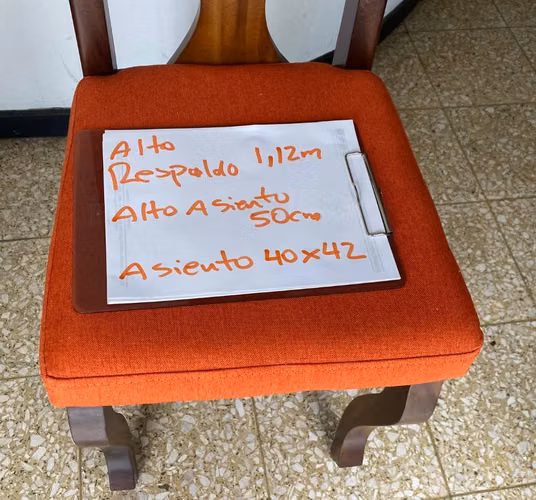 Alto
Respaldo 1,12m
Alto Asiento
50cm
Asiento 40x42